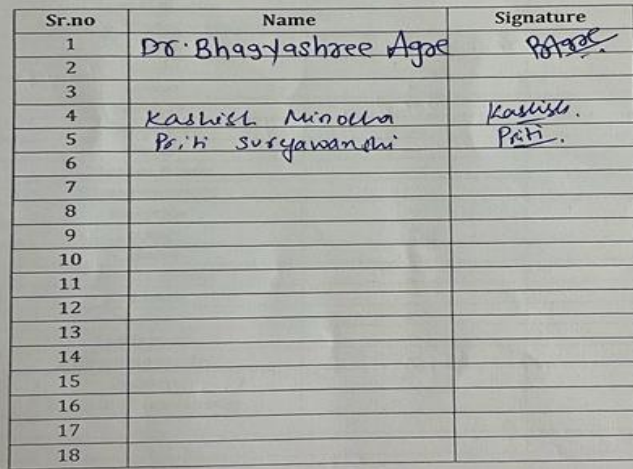 Sr.no Name Signature
1 Dr. Bhagyashree Agre BAgre
2
3
4 Kashish Minocha Kashish.
5 Priti Suryawanshi Priti.
6
7
8
9
10
11
12
13
14
15
16
17
18